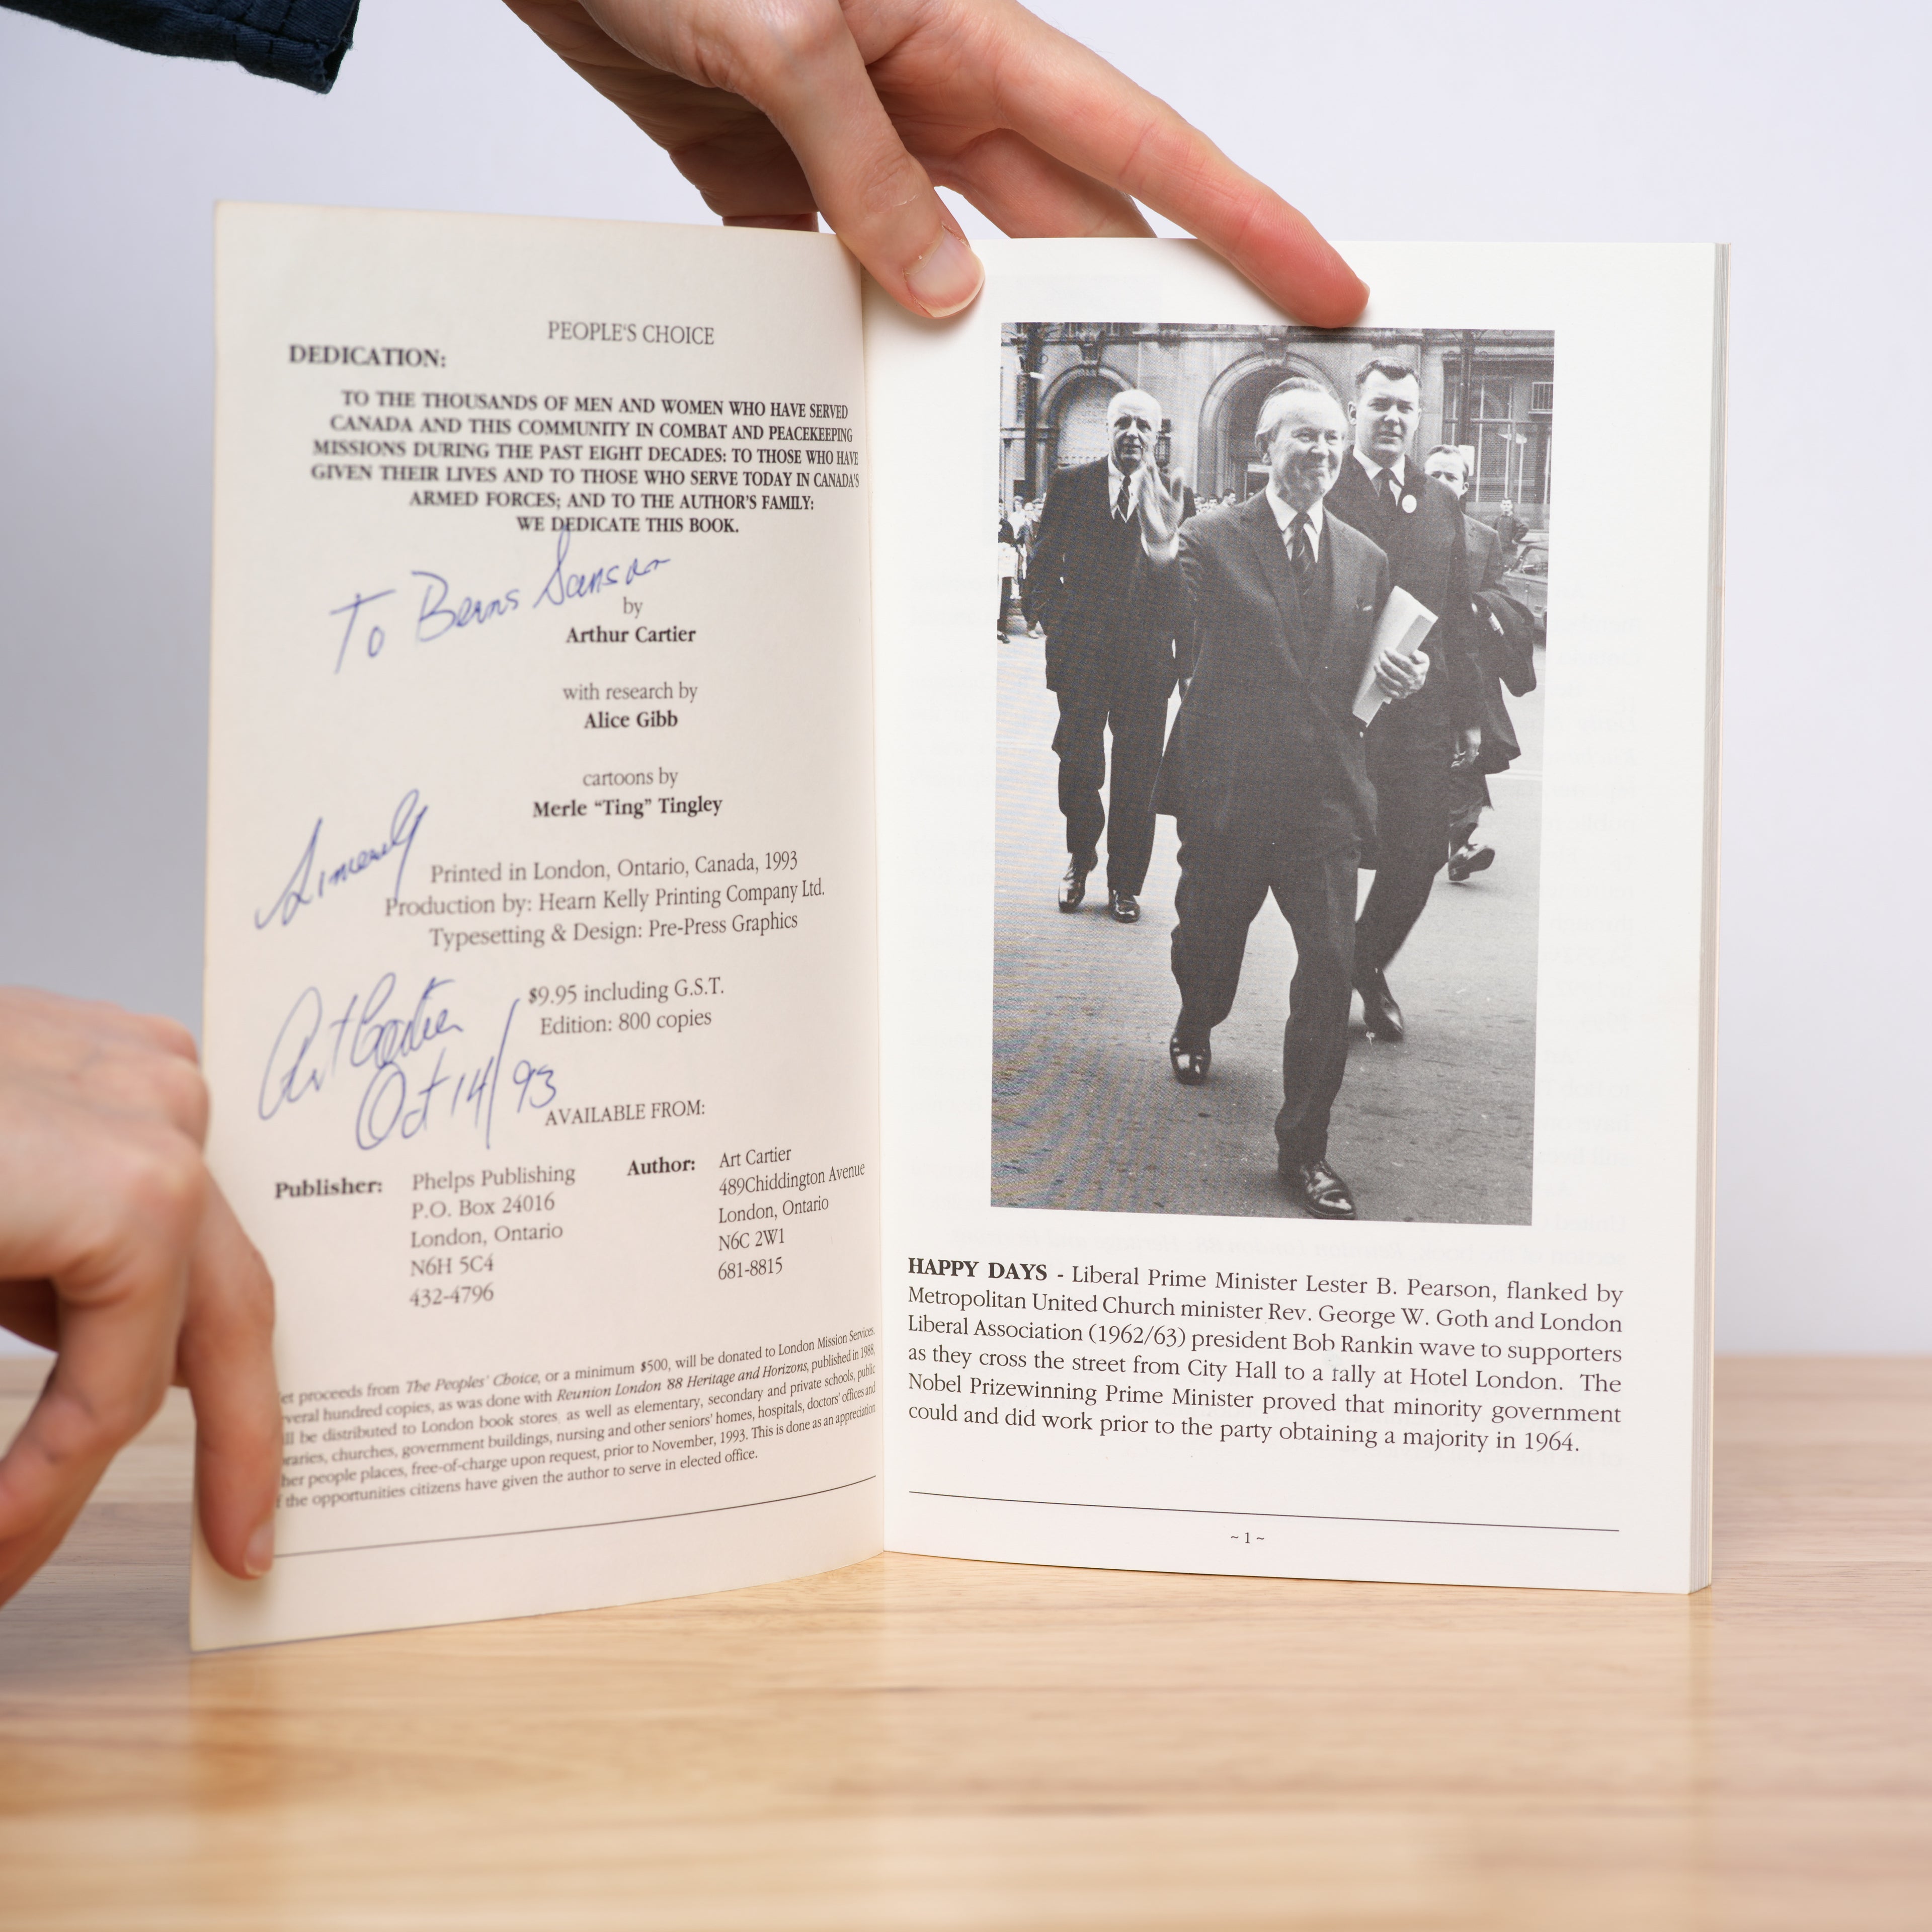 PEOPLE'S CHOICE
DEDICATION:
TO THE THOUSANDS OF MEN AND WOMEN WHO HAVE SERVED
CANADA AND THIS COMMUNITY IN COMBAT AND PEACEKEEPING
MISSIONS DURING THE PAST EIGHT DECADES: TO THOSE WHO HAVE
GIVEN THEIR LIVES AND TO THOSE WHO SERVE TODAY IN CANADA'S
ARMED FORCES; AND TO THE AUTHOR'S FAMILY:
WE DEDICATE THIS BOOK.
To
by
Arthur Cartier
with research by
Alice Gibb
cartoons by
Merle “Ting” Tingley
Sincerely
Printed in London, Ontario, Canada, 1993
Production by: Hearn Kelly Printing Company Ltd.
Typesetting & Design: Pre-Press Graphics
$9.95 including G.S.T.
Edition: 800 copies
Art Cartier
Oct 14/93
AVAILABLE FROM:
Publisher: Phelps Publishing
P.O. Box 24016
London, Ontario
N6H 5C4
432-4796
Author: Art Cartier
489Chiddington Avenue
London, Ontario
N6C 2W1
681-8815
et proceeds from The Peoples' Choice, or a minimum $500, will be donated to London Mission Services,
veral hundred copies, as was done with Reunion London '88 Heritage and Horizons, published in 1988,
ll be distributed to London book stores as well as elementary, secondary and private schools, public
raries, churches, government buildings, nursing and other seniors' homes, hospitals, doctors' offices and
her people places, free-of-charge upon request, prior to November, 1993. This is done as an appreciation
f the opportunities citizens have given the author to serve in elected office.
HAPPY DAYS - Liberal Prime Minister Lester B. Pearson, flanked by
Metropolitan United Church minister Rev. George W. Goth and London
Liberal Association (1962/63) president Bob Rankin wave to supporters
as they cross the street from City Hall to a rally at Hotel London. The
Nobel Prizewinning Prime Minister proved that minority government
could and did work prior to the party obtaining a majority in 1964.
~ 1 ~